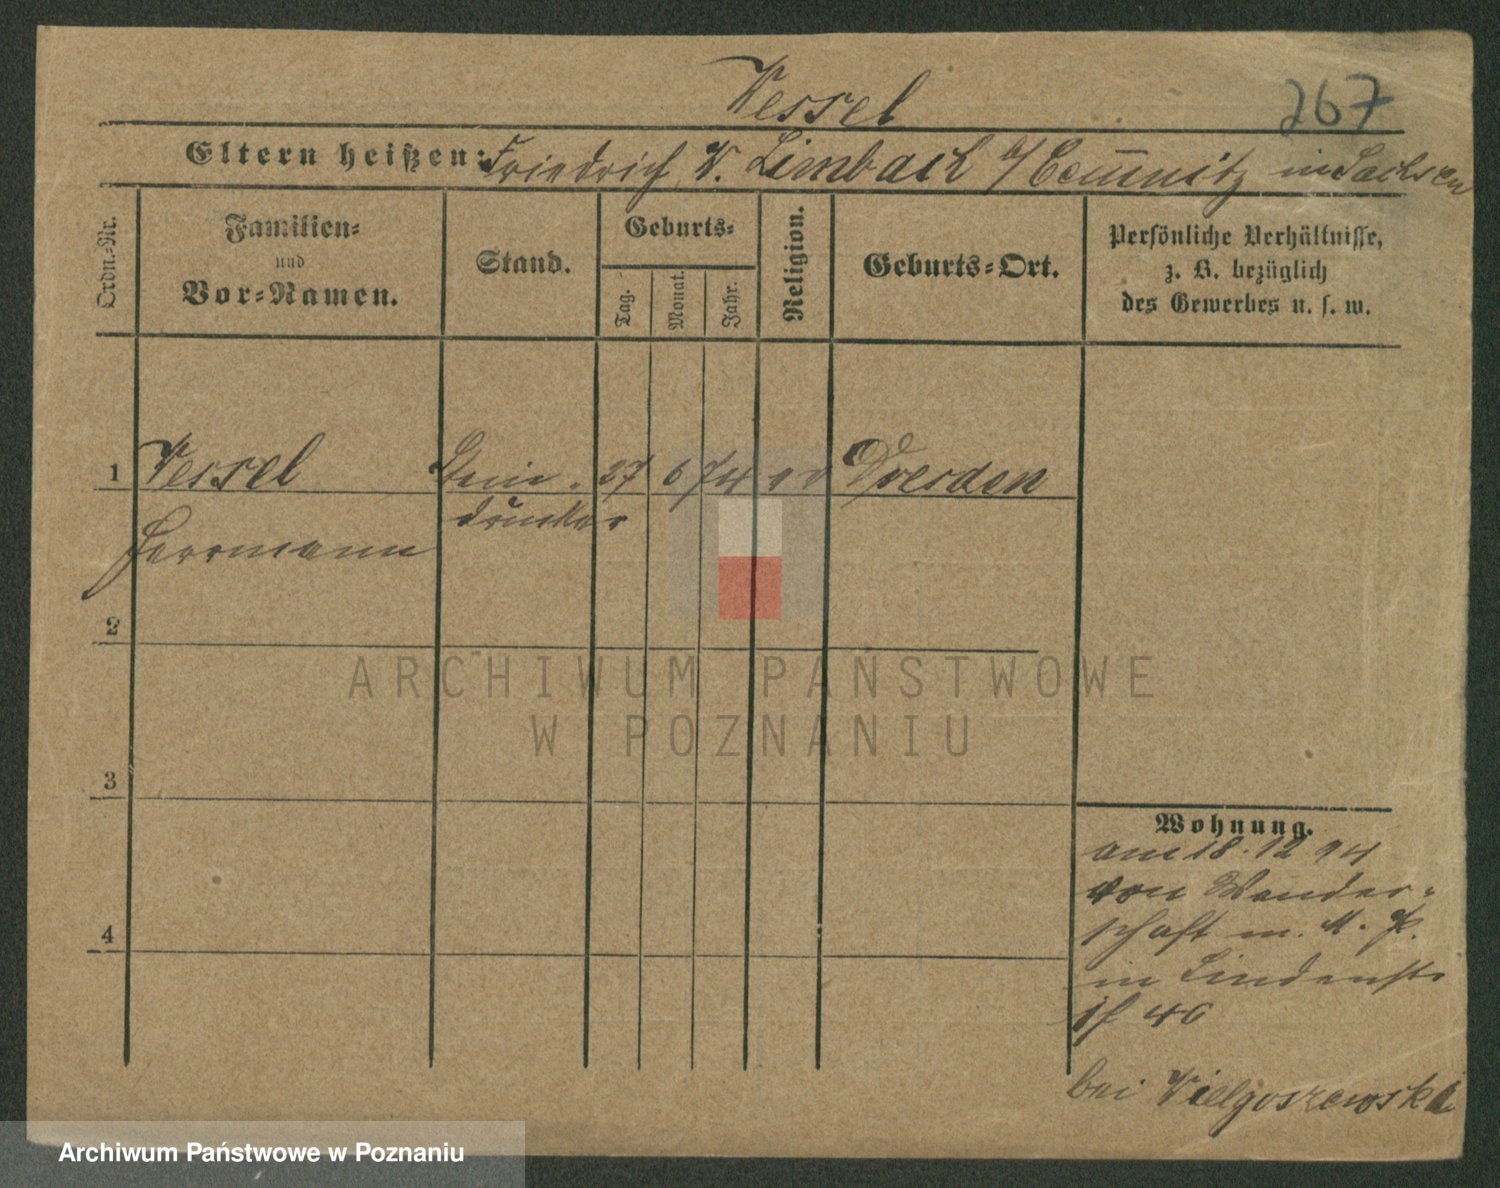 Vessel
267
Eltern heißen: Friedrich V. Limbach b/ Cemnitz in Sachsen
Ordn.-Nr.
Familien-
und
Vor-Namen.
Stand.
Geburts-
Tag.
Monat.
Jahr.
Religion.
Geburts-Ort.
Persönliche Verhältnisse,
z. B. bezüglich
des Gewerbes u. s. w.
1 Vessel Stein- 27 6 74 Dresden
drucker
Herrmann
2
3
4
Wohnung.
am 18.12 94
von Wander-
schaft m. M. P.
in Lindenstr
46
bei Vielgoszewska
ARCHIWUM PAŃSTWOWE
W POZNANIU
Archiwum Państwowe w Poznaniu